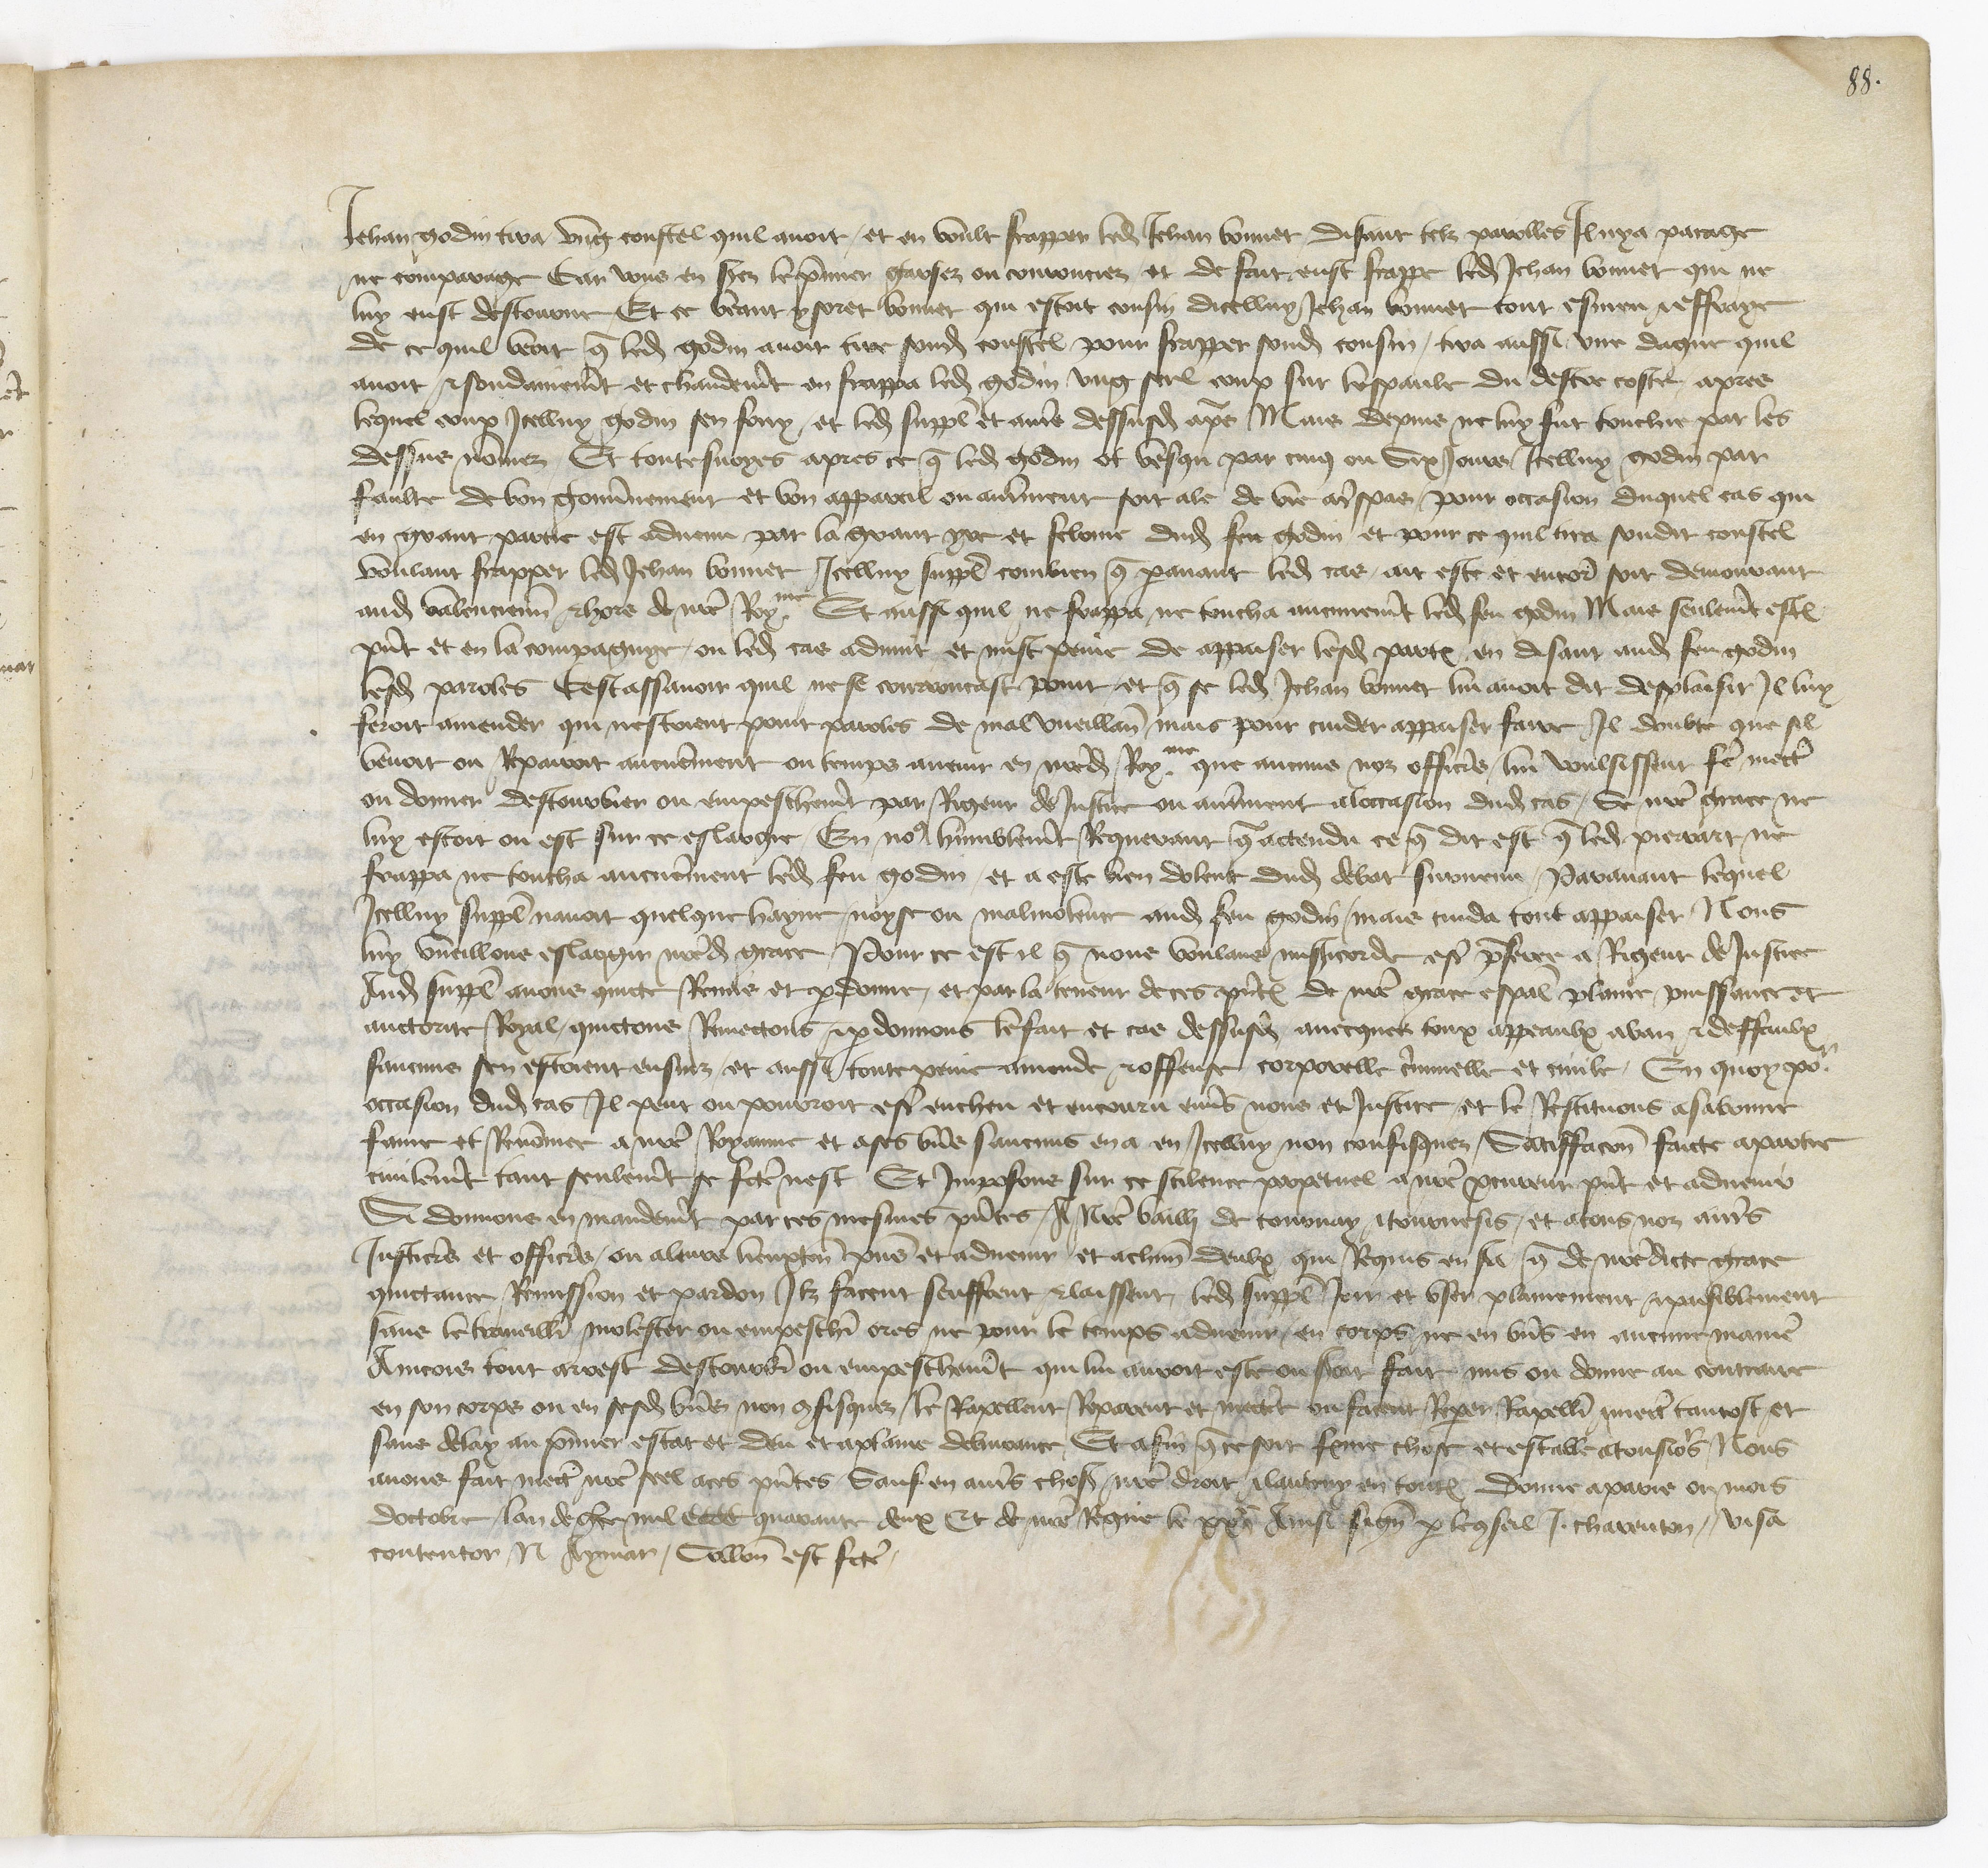 88.
Jehan godin tira ung coustel quil avoit et en voult frapper led Jehan bonnet disant telz parolles Il nya parage
ne comparage Car vous en serez le pmier ou courouciez et de fait eust frappe led Jehan bonnet qui ne
luy eust destourne Et ce veant bonnet qui estoit cousin dicelluy Jehan bonnet tout esmeu & effraye
de ce quil veoit q led godin avoit tire sond coustel pour frapper sond cousin tira aussi une dague quil
avoit & soudainemt et chaudemt en frappa led godin ung seul coup sur lespaule du destre coste apres
lequel coup Icelluy godin sen fouy et led suppl et autre dessusd apres Mais depuis ne luy fut touchie par les
dessus nommez Et toutesvoyes apres ce q led godin ot vesqu par cinq ou Six Jours Icelluy godin par
faulte de bon gouvnement et bon appareil ou autrement soit ale de vie a trespas pour occasion duquel cas qui
en grant partie est advenu par la grant yre et felonie dud feu godin et pour ce quil tira sondit coustel
voulant frapper led Jehan bonnet Icelluy suppl combien q paravant led cas ait este et encor soit demourant
aud valencienn & hors de nre Roy.me Et aussi quil ne frappa ne toucha aucunemt led feu godin Mais seulemt estoit
pnt et en la compagnye ou led cas advint et mist peine de appaiser lesd parties en disant aud feu godin
lesd paroles Cestassavoir quil ne se courroucast point et q se led Jehan bonnet lui avoit dit desplaisir Il luy
feroit amender qui nestoient point paroles de malvueillance mais pour cuider appaiser faire Il doubte que sil
venoit ou Repairoit aucunement ou temps avenir en nred Roy.me que aucuns noz officrs lui voulsissent fe mectre
ou donner destourbier ou empeschemt par Rigeur de Justice ou autrement a loccasion dud cas Se nre grace ne
luy estoit ou est sur ce eslargie En nos humblemt Requerant q actendu ce q dit est q led pierart ne
frappa ne toucha aucunement led feu godin et a este bien dolent dud debat survenu Paravant lequel
Icelluy suppl navoit quelque hayne noyse ou malivolence aud feu godin mais cuida tout appaiser Nous
luy vueillons eslargir nred grace Pour ce est il q nous voulans misericorde estre pferee a Rigeur de Justice
Aud suppl avons quicte Remis et pdonne et par la teneur de ces pntes de nre grace espal plaine puissance et
auctorite Royal quictons Remectons & pdonnons le fait et cas dessusd avecques touz appeaulx a ban & deffaulx
saucuns sen estoient ensuiz et aussi toute peine amende & offense corporelle criminelle et civile En quoy por
occasion dud cas Il peut ou pourroit estre encheu et encouru envs nous et Justice et le Restituons a sa bonne
fame et Renommee a nre Royaume et a ses biens saucuns en a en Icelluy non confisquez Satisffacon faicte a partie
civilemt tant seulemt se fcte nest Et Imposons sur ce silence perpetuel a nre procureur pnt et advenir
Si donnons en mandemt par ces mesmes pntes A Nre bailli de tournay & tournesis et a tous noz autrs
Justicrs et officrs ou a leurs lieuxten pns et advenir et a chun deulx qui Requis en sera q de nredicte grace
quictance Remission et pardon Ilz facent seuffrent & laissent led suppl Joir et user plainement & paisiblement
sans le travaillr molester ou empeschr ores ne pour le temps advenir en corps ne en bns en aucune maniere
Aincois tout arrest destourbr ou empeschemt qui lui auroit este ou seroit fait mis ou donne au contraire
en son corps ou en sesd bns non confisquez le Rapellent Reparent et mectent ou facent Reper Rapellr & mectre tantost et
sans delay au pmier estat et deu et a plaine delivrance Et afin q ce soit ferme chose et estable a tousiours Nous
avons fait mectre nre seel a ces pntes Sauf en autrs choses nre droit & lautruy en toutes Donne a paris ou mois
doctobre lan de grace mil cccc quarante deux Et de nre Regne le Ainsi signe p le conseil J. charenton Visa
contentor N Aymar Collon est fcte